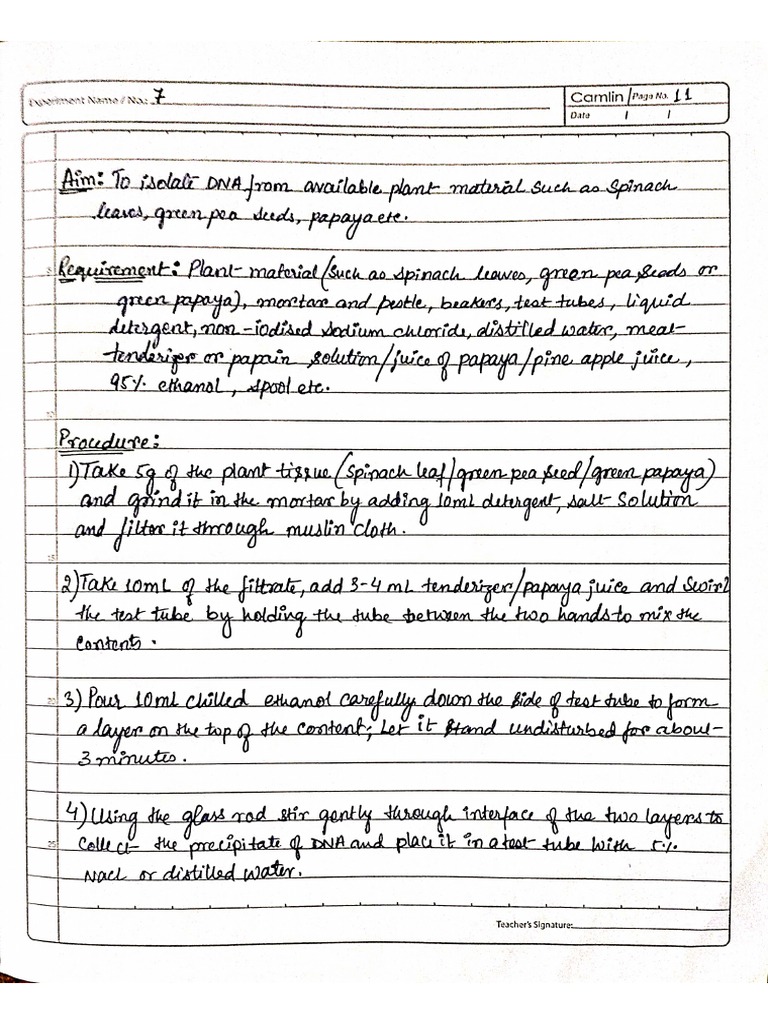 Experiment Name / No.: 7
Camlin Page No. 11
Date
Aim: To isolate DNA from available plant material such as spinach
leaves, green pea seeds, papaya etc.
Requirement: Plant material (such as spinach leaves, green pea, seeds or
green papaya), mortar and pestle, beakers, test tubes, liquid
detergent, non-iodised sodium chloride, distilled water, meat-
tenderizer or papain solution/juice of papaya/pine apple juice,
95% ethanol, spool etc.
Procedure:
1) Take 5g of the plant tissue (spinach leaf/green pea seed/green papaya)
and grind it in the mortar by adding 10mL detergent, salt solution
and filter it through muslin cloth.
2) Take 10mL of the filtrate, add 3-4 mL tenderizer/papaya juice and swirl
the test tube by holding the tube between the two hands to mix the
contents.
3) Pour 10mL chilled ethanol carefully down the side of test tube to form
a layer on the top of the content; Let it stand undisturbed for about
3 minutes.
4) Using the glass rod stir gently through interface of the two layers to
collect the precipitate of DNA and place it in a test tube with 5%
NaCl or distilled water.
Teacher's Signature: